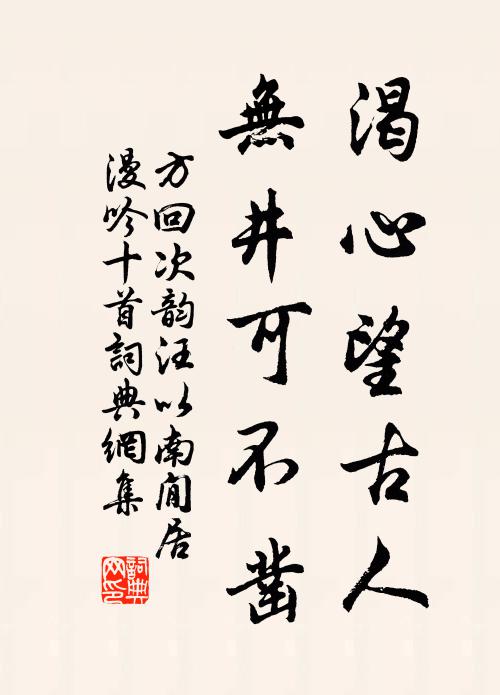 渴心望古人
無井可不鑿
方回次韵汪以南閒居
漫吟十首詞典網集
詞典网印